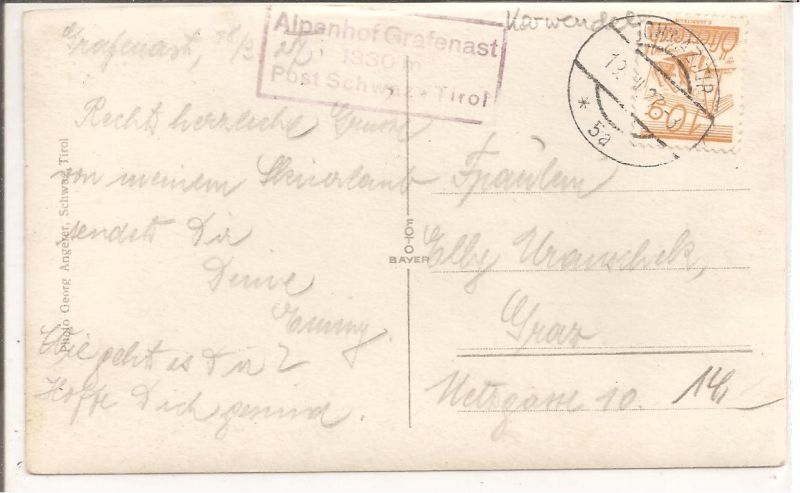 Alpenhof Grafenast
1330 m
Post Schwaz - Tirol
Karwendel
Grafenast,
Recht herzliche Grüsse
von meinem Skiurlaub
sendet Dir
Deine
Emmy.
Wie geht es Dir?
Hoffe Dich gesund.
Photo Georg Angerer, Schwaz, Tirol
FOTO
BAYER
* 5a
Fräulein
Elly
Graz
Metzgasse 10.